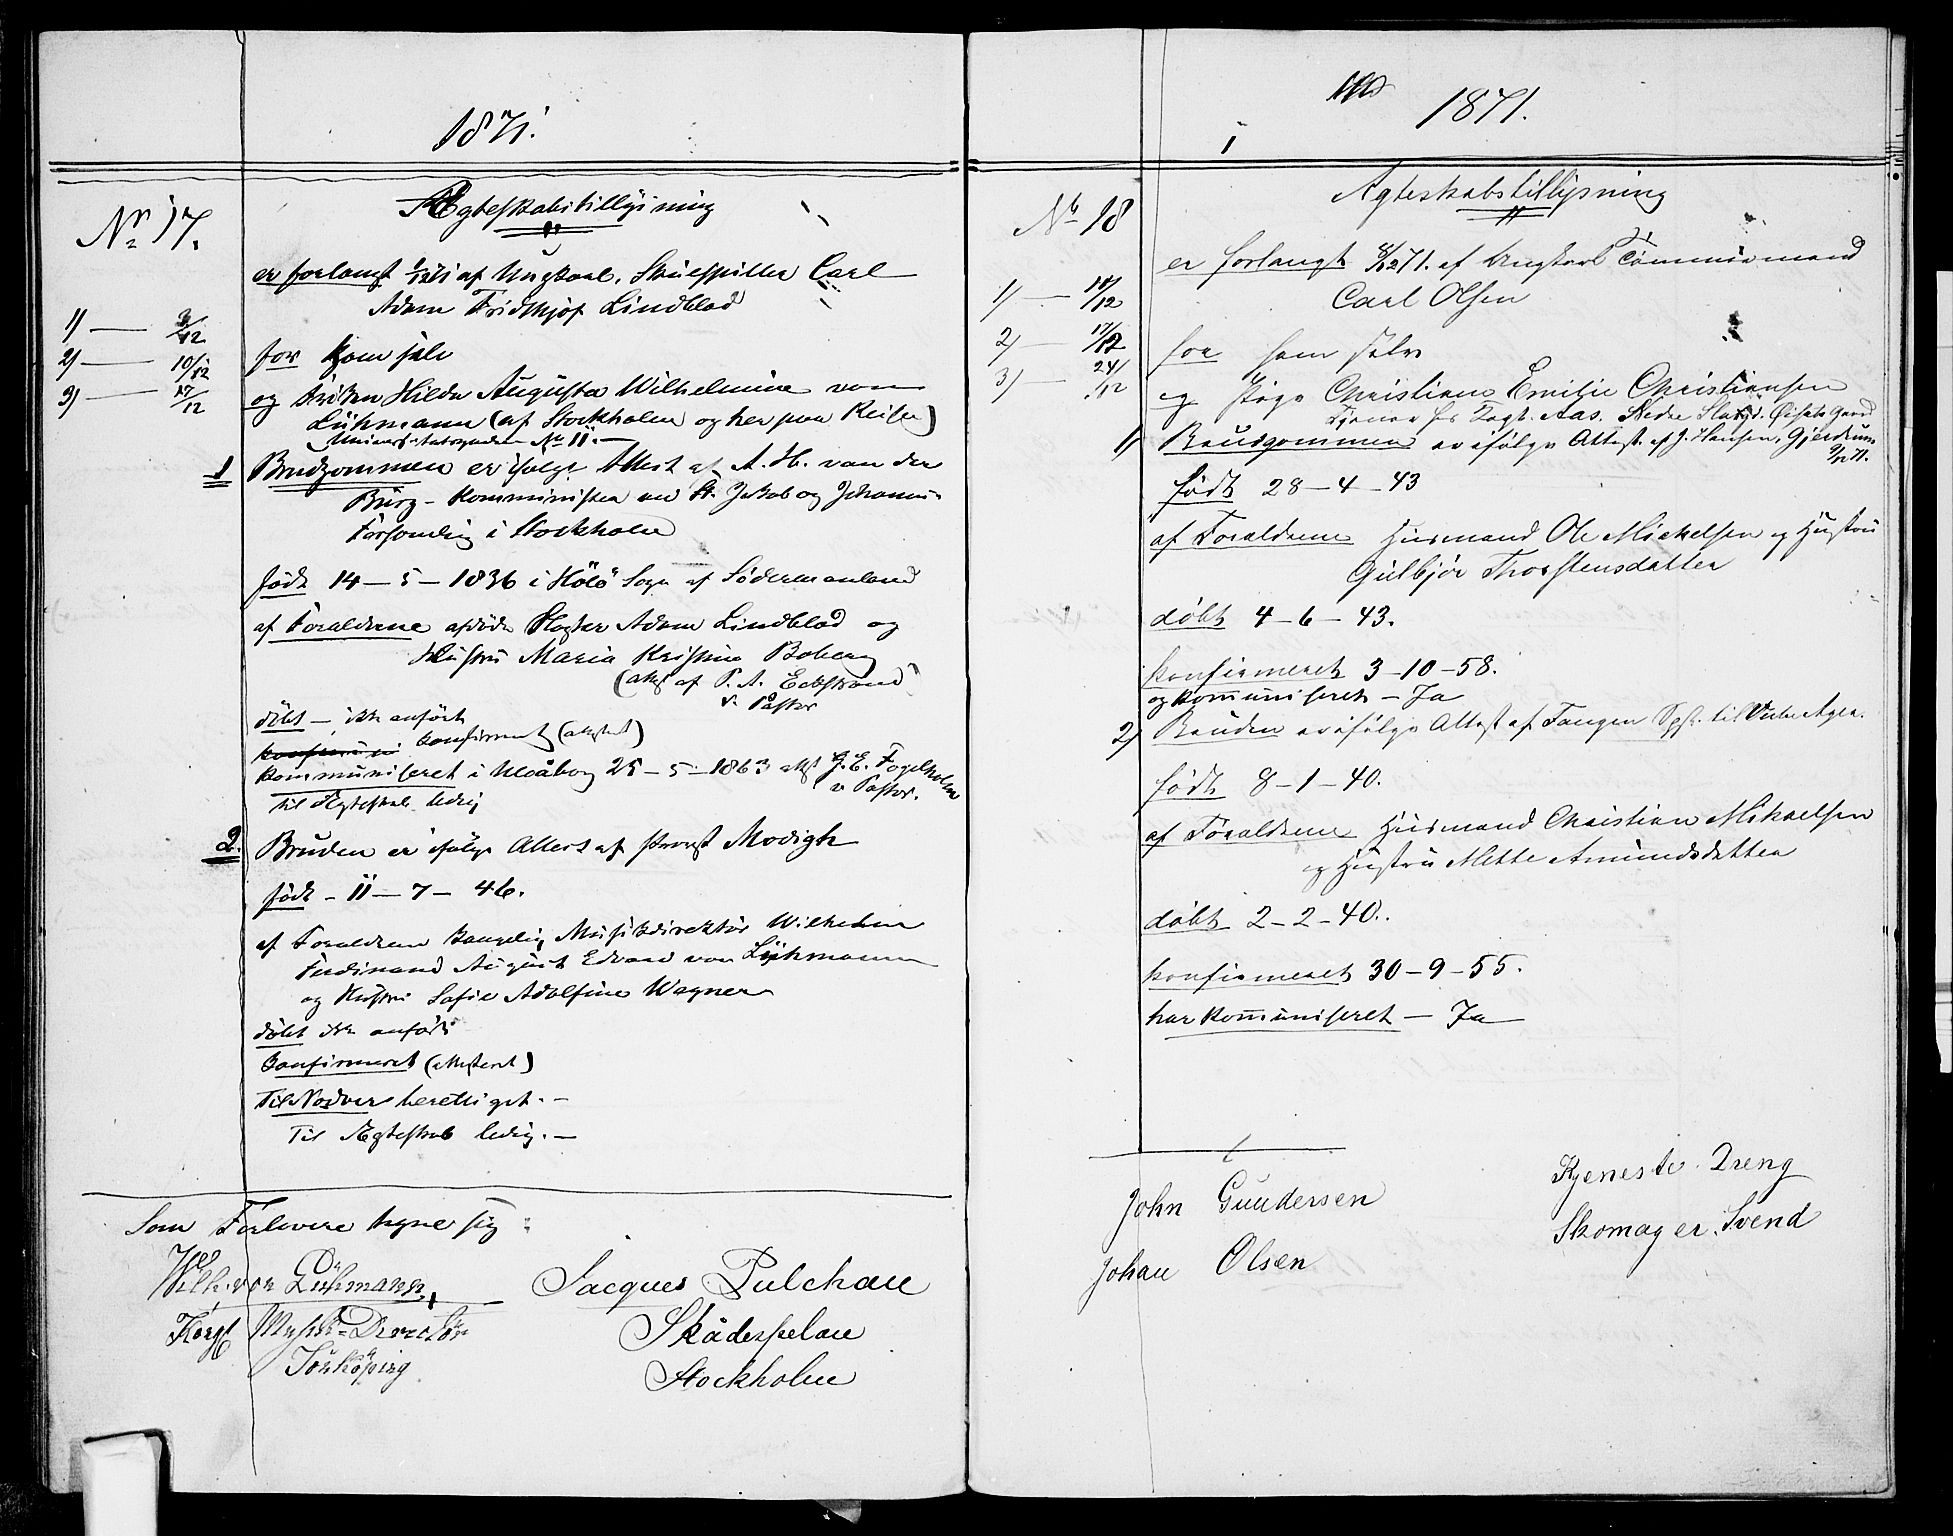 1871.
No 17.
Ægteskabstillysning
er forlangt 1/12 71 af Ungkarl, Skuespiller Carl
Adam Fridthjof Lindblad
1) — 3/12
2) — 10/12
3) — 17/12
for ham selv
og Frøken Hilda Augusta Wilhelmina von
Lühmann (af Stockholm og her paa Reise)
No 11.
1 Brudgommen er ifølge Attest af A. H. van der
Burg - Komminister ved St. Jakob og Johannis
Forsamling i Stockholm
født 14 - 5 - 1836 i Hölö Sogn af Södermanland
af Forældrene afdøde Adam Lindblad og
Hustru Maria Kristina Boberg
(attest af P. A. Eckstrand
v. Pastor
døbt - ikke anført
konfirmeret (attesteret)
kommuniseret i 25 - 5 - 1863 att G. E. Fogelholm
v. Pastor.
til Ægteskab ledig
2. Bruden er ifølge Attest af Provst Modigh
født - 11 - 7 - 46.
af Forældrene Kongelig Musikdirektør Wilhelm
Ferdinand August Edvard von Lühmann
og Hustru Sofie Adolfine Wagner
døbt ikke anført
Konfirmeret (attesteret)
Til Nadver berettiget. -
Til Ægteskab ledig. -
Som Forlovere tegne sig:
Wilh. von Lühmann
Kongl Musik-Director
Jönköping
Jacques Pulchau
Skådespelare
Stockholm
1871.
No 18
Ægteskabstillysning
er forlangt 8/12 71. af Ungkarl Tömmermand
Carl Olsen
1) — 10/12
2) — 17/12
3) — 24/12
for ham selv
og Pige Christiane Emilie Christiansen
tjener hos Aas. Nedre
1) Brudgommen er ifølge Attest af J. Hansen, Gjerdrum
9/12 71.
født 28 - 4 - 43
af Forældrene Husmand Ole Mickelsen og Hustru
Gulbjør Thorstensdatter
døbt 4 - 6 - 43.
konfirmeret 3 - 10 - 58.
og kommuniseret - Ja
2) Bruden er ifølge Attest af Tangen Spr. til Vestre Aker.
født 8 - 1 - 40.
af Forældrene Husmand Christian Mikaelsen
og Hustru Mette Amundsdatter
døbt 2 - 2 - 40.
konfirmeret 30 - 9 - 55.
har kommuniseret - Ja
John Gundersen Kjeneste. Dreng
Johan Olsen Skomager. Svend